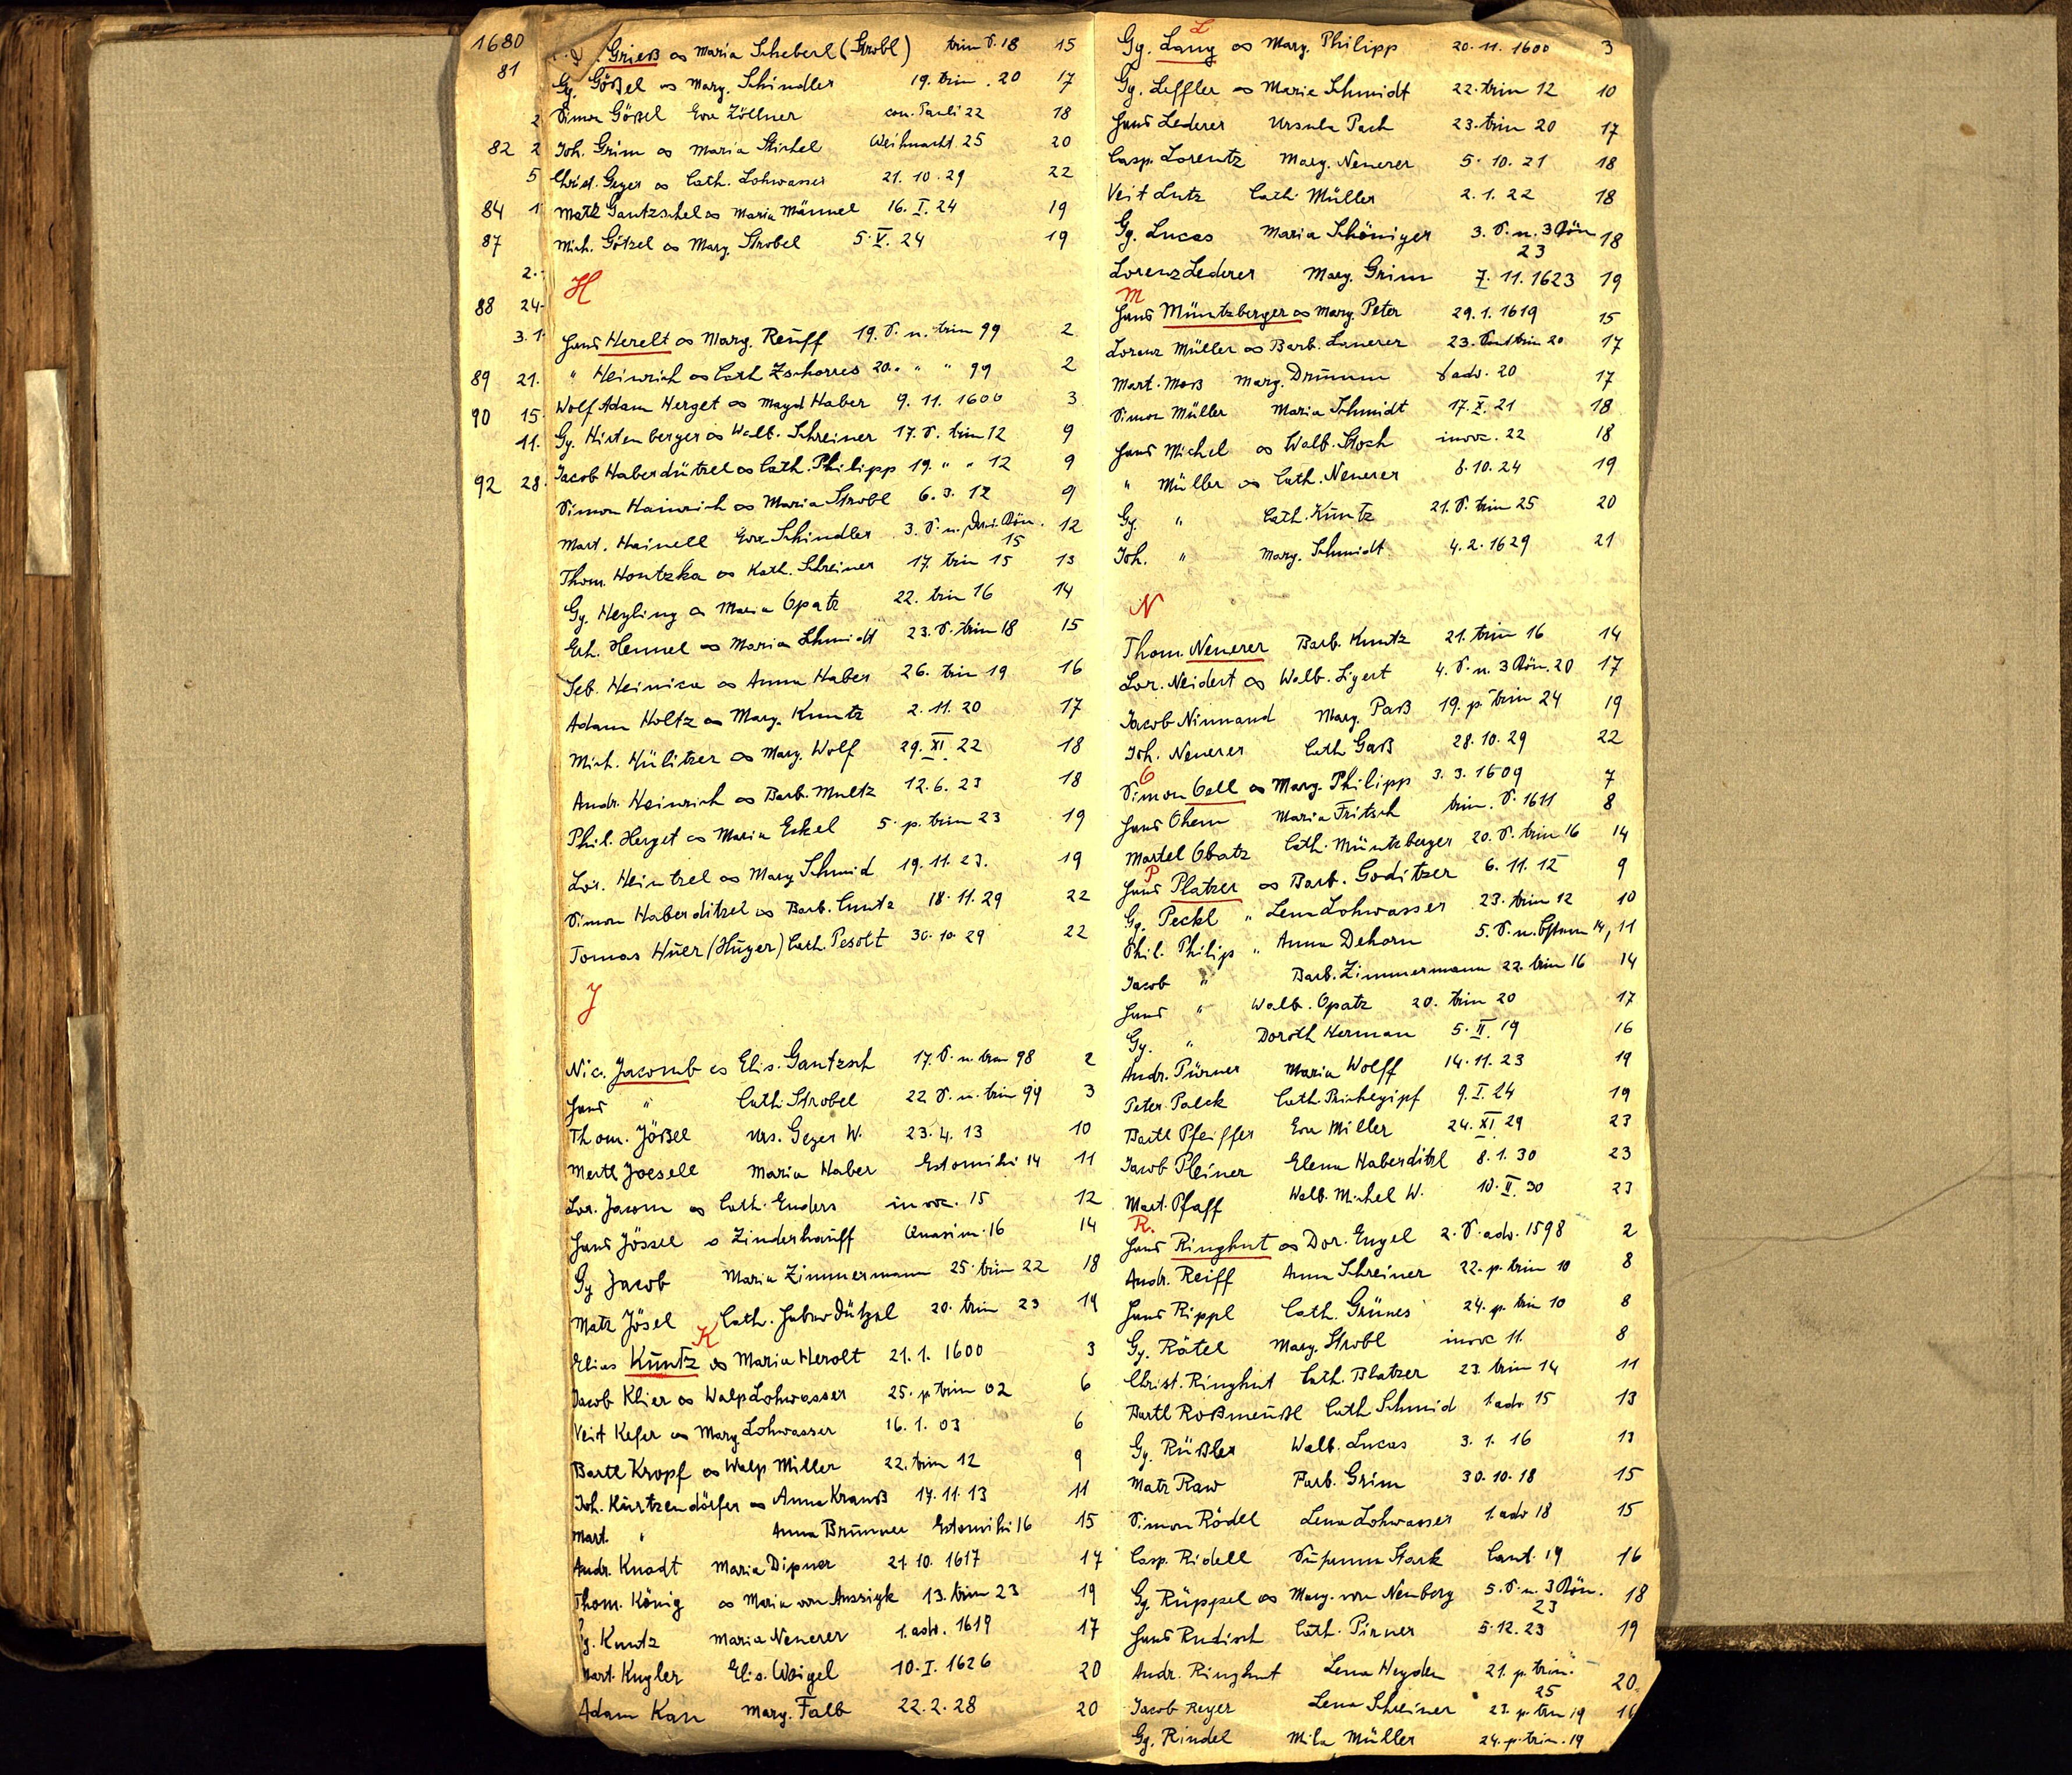 1680
81
2
82 2
5
84 1
87
2.
88 24.
3.1
89 21.
90 15.
11.
92 28.
Grieß ∞ Maria Scheberl (Strobl) trin S. 18 15
Gg. Gößel ∞ Marg. Schindler 19. trin. 20 17
Simon Gößel Eva Zöllner con. Pauli 22 18
Joh. Grim ∞ Maria Stichel Weihnacht. 25 20
Christ. Geyer ∞ Cath. Lohwasser 21. 10. 29 22
Matz Gantzschel ∞ Maria Männel 16. I. 24 19
Mich. Götzel ∞ Marg. Strobel 5. V. 24 19
H
Hans Herelt ∞ Marg. Reüff 19. S. n. trin 99 2
" Heinrich ∞ Cath Zschorres 20. " " 99 2
Wolf Adam Herget ∞ Magd Haber 9. 11. 1600 3
Gg. Hirtenberger ∞ Walb. Schreiner 17. S. trin 12 9
Jacob Haberdützel ∞ Cath. Philipp 19. " " 12 9
Simon Hainrich ∞ Maria Strobl 6. 3. 12 9
Mart. Hainell Eva Schindler 3. S. n. Drei Kön. 12
15
Thom. Hontzka ∞ Kath. Schreiner 17. trin 15 13
Gg. Heyling ∞ Maria Opatz 22. trin 16 14
Erh. Hennel ∞ Maria Schmidt 23. S. trin 18 15
Seb. Heinica ∞ Anna Haber 26. trin 19 16
Adam Holtz ∞ Marg. Kuntz 2. 11. 20 17
Mich. Hülitzer ∞ Marg. Wolf 29. XI. 22 18
Andr. Heinrich ∞ Barb. Multz 12. 6. 23 18
Phil. Herget ∞ Maria Eckel 5. p. trin 23 19
Lor. Heintzel ∞ Marg Schmid 19. 11. 23. 19
Simon Haberditzel ∞ Barb. Cuntz 18. 11. 29 22
Tomas Hüer (Hüyer) Cath. Pesolt 30. 10. 29 22
J
Nic. Jacomb ∞ Elis. Gantzsch 17. S. n. trin 98 2
Hans " Cath. Strobel 22 S. n. trin 99 3
Thom. Jößel Urs. Geyer W. 23. 4. 13 10
Mertl Joesell Maria Haber Estomihi 14 11
Lor. Jacom ∞ Cath. Enders invoc. 15 12
Hans Jössel ∞ Zinderhauff Quasim. 16 14
Gg Jacob Maria Zimmermann 25. trin 22 18
Matz Jösel Cath. Haberdützel 20. trin 23 19
K
Elias Kuntz ∞ Maria Herolt 21. 1. 1600 3
Jacob Klier ∞ Walp Lohwasser 25. p trin 02 6
Veit Kefer ∞ Marg Lohwasser 16. 1. 03 6
Bartl Kropf ∞ Walp Miller 22. trin 12 9
Joh. Kürtzendörfer ∞ Anna Krauß 17. 11. 13 11
Mart. " Anna Brunner Estomihi 16 15
Andr. Knodt Maria Dipner 21. 10. 1617 17
Thom. König ∞ Maria von Aussigk 13. trin 23 19
Kuntz Maria Neuerer 1. adv. 1619 17
Mart. Kugler Elis. Weigel 10. I. 1626 20
Adam Kan Marg. Falb 22. 2. 28 20
L
Gg. Lang ∞ Marg. Philipp 20. 11. 1600 3
Gg. Leffler ∞ Maria Schmidt 22. trin 12 10
Hans Lederer Ursula Pach 23. trin 20 17
Casp. Lorentz Marg. Neuerer 5. 10. 21 18
Veit Lutz Cath. Müller 2. 1. 22 18
Gg. Lucas Maria Schöniger 3. S. n. 3 Kön 18
23
Lorenz Lederer Marg. Grim 7. 11. 1623 19
M
Hans Müntzberger ∞ Marg. Peter 29. 1. 1619 15
Lorenz Müller ∞ Barb. Lauerer 23. S. trin 20 17
Mart. Moß Marg. Drumm adv. 20 17
Simon Müller Maria Schmidt 17. X. 21 18
Hans Michel ∞ Walb. Stoch invoc. 22 18
" Müller ∞ Cath. Neuerer 8. 10. 24 19
Gg. " Cath. Kuntz 21. S. trin 25 20
Joh. " Marg. Schmidt. 4. 2. 1629 21
N
Thom. Neuerer Barb. Kuntz 21. trin 16 14
Lor. Neidert ∞ Walb. Ligert 4. S. n. 3 Kön. 20 17
Jacob Nimmand Marg. Paß 19. p. trin 24 19
Joh. Neuerer Cath Gaß 28. 10. 29 22
O
Simon Oell ∞ Marg. Philipp 3. 3. 1609 7
Hans Ohem Maria Fritsch trin. S. 1611 8
Martel Obatz Cath. Müntzberger 20. S. trin 16 14
P
Hans Platzer ∞ Barb. Goditzer 6. 11. 12 9
Gg. Peckl " Lena Lohwasser 23. trin 12 10
Phil. Philip " Anna Dehorn 5. S. n. Ostern 14, 11
Jacob " Barb. Zimmermann 22. trin 16 14
Hans " Walb. Opatz 20. trin 20 17
Gg. " Doroth Herman 5. II. 19 16
Andr. Pürner Maria Wolff 14. 11. 23 19
Peter Palck Cath. Richegipf 9. I. 24 19
Bartl Pfeiffer Eva Miller 24. XI. 29 23
Jacob Pleiner Elena Haberditzl 8. 1. 30 23
Mart. Pfaff Walb. Michel W. 10. II. 30 23
R.
Hans Ringhut ∞ Dor. Engel 2. S. adv. 1598 2
Andr. Reiff Anna Schreiner 22. p. trin 10 8
Hans Rippl Cath. Grünes 24. p. trin 10 8
Gg. Rätel Marg. Strobl invoc 11. 8
Christ. Ringhut Cath. Blatzer 23. trin 14 11
Bartl Roßmeüsl Cath Schmid 1 adv 15 13
Gg. Rüßler Walb. Lucas 3. 1. 16 13
Matz Raw Barb. Grim 30. 10. 18 15
Simon Rödel Lena Lohwasser 1. adv 18 15
Casp. Ridell Susanna Stark Cant. 19 16
Gg. Rüppel ∞ Marg. von Nenberg 5. S. n. 3 Kön. 18
23
Hans Rudisch Cath. Pirner 5. 12. 23 19
Andr. Ringhut Lena Heyden 21. p. trin. 20
25
Jacob Reyer Lena Schreiner 23. p. trin 19 16
Gg. Rindel Mila Müller 24. p. trin. 19